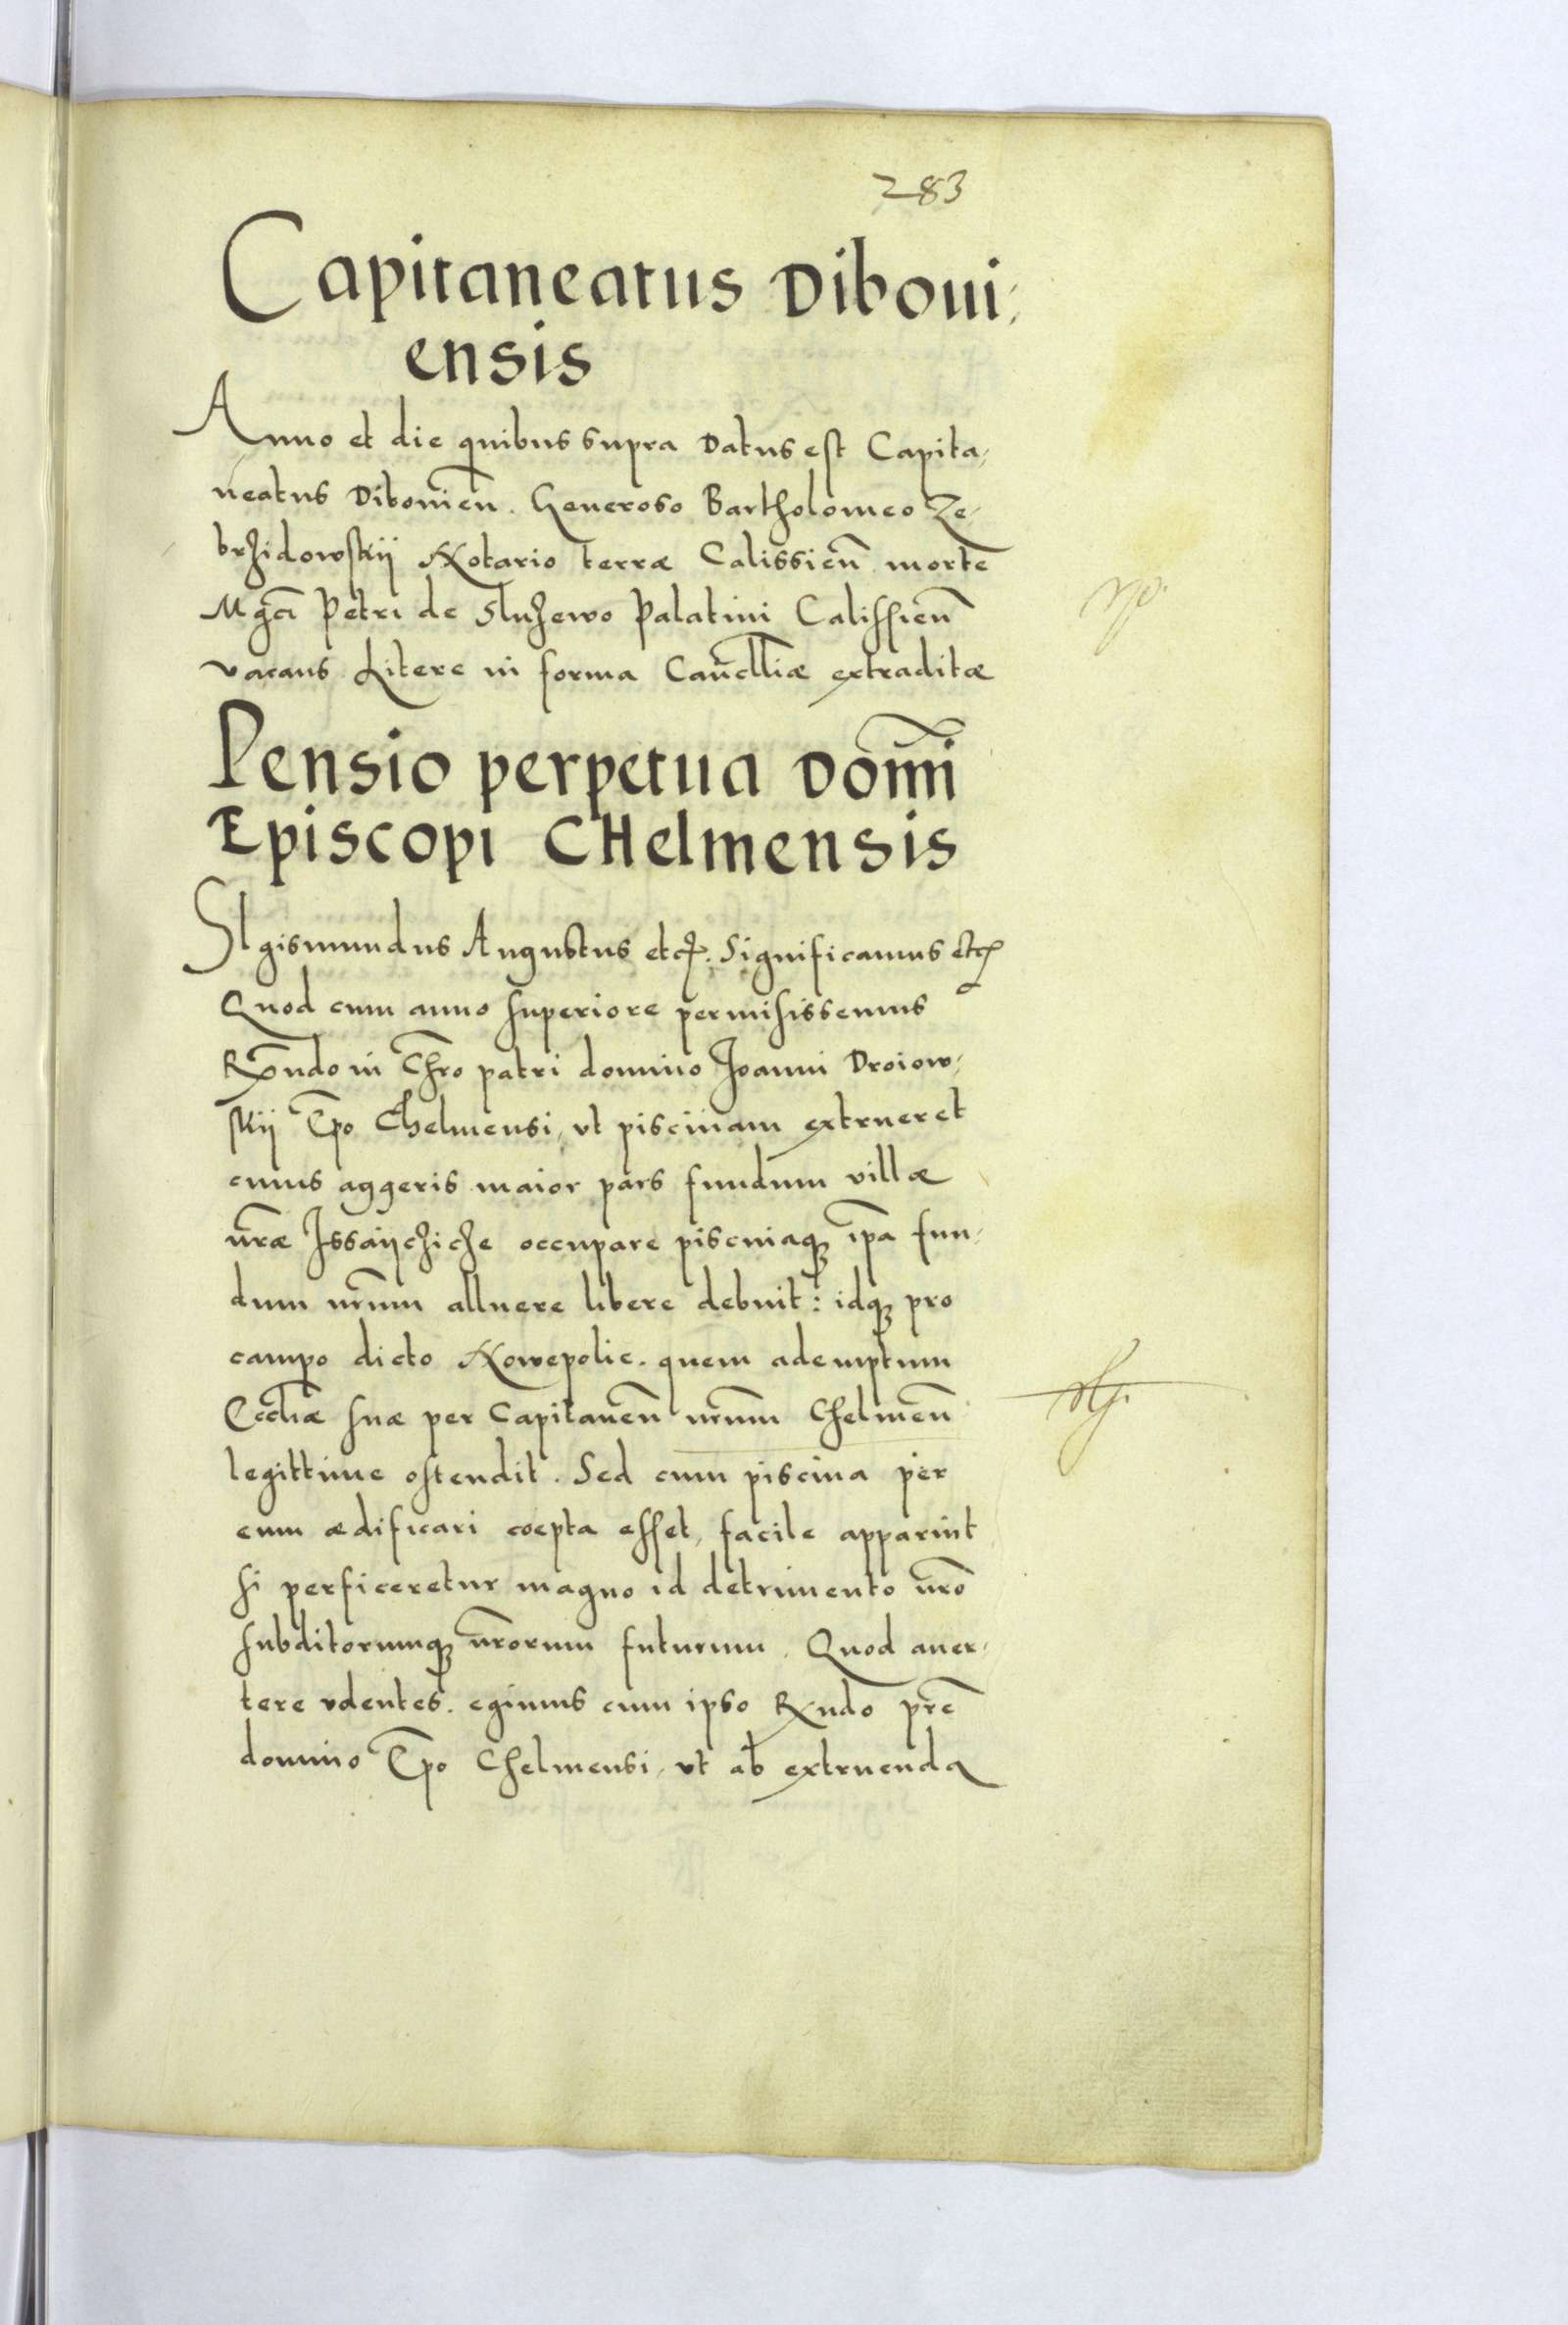 283
Capitaneatus Diboui,
ensis
Anno et die quibus supra Datus est Capita,
neatus Dibouien̄. Generoso Bartholomeo Ze,
brzidowskij Notario terræ Calissien̄ morte
Mgci Petri de Sluzewo Palatini Calissien̄
vacans Litere in forma Can̄clliæ extraditæ
Pensio perpetua Domi
Episcopi CHelmensis
SIgismundus Augustus etc. Significamus etc
Quod cum anno superiore permisissemus
Rx̄ndo in Chr̄o patri domino Joanni Droiow,
skij Ep̄o Chelmensi, vt piscinam extrueret
cuius aggeris maior pars fundum villæ
nr̄æ Issaijchiche occupare piscinaq; ip̄a fun,
dum nr̄um alluere libere debuit: idq; pro
campo dicto Nowepolie. quem ademptum
Eccliæ suæ per Capitaneū nr̄um Chelmen̄
legittime ostendit. Sed cum piscina per
eum ædificari coepta esset, facile apparuit
si perficeretur magno id detrimento nr̄o
subditorumq; nr̄orum futurum. Quod auer,
tere vdentes. egimus cum ipso Rx̄ndo pr̄e
domino Ep̄o Chelmensi, vt ab extruenda